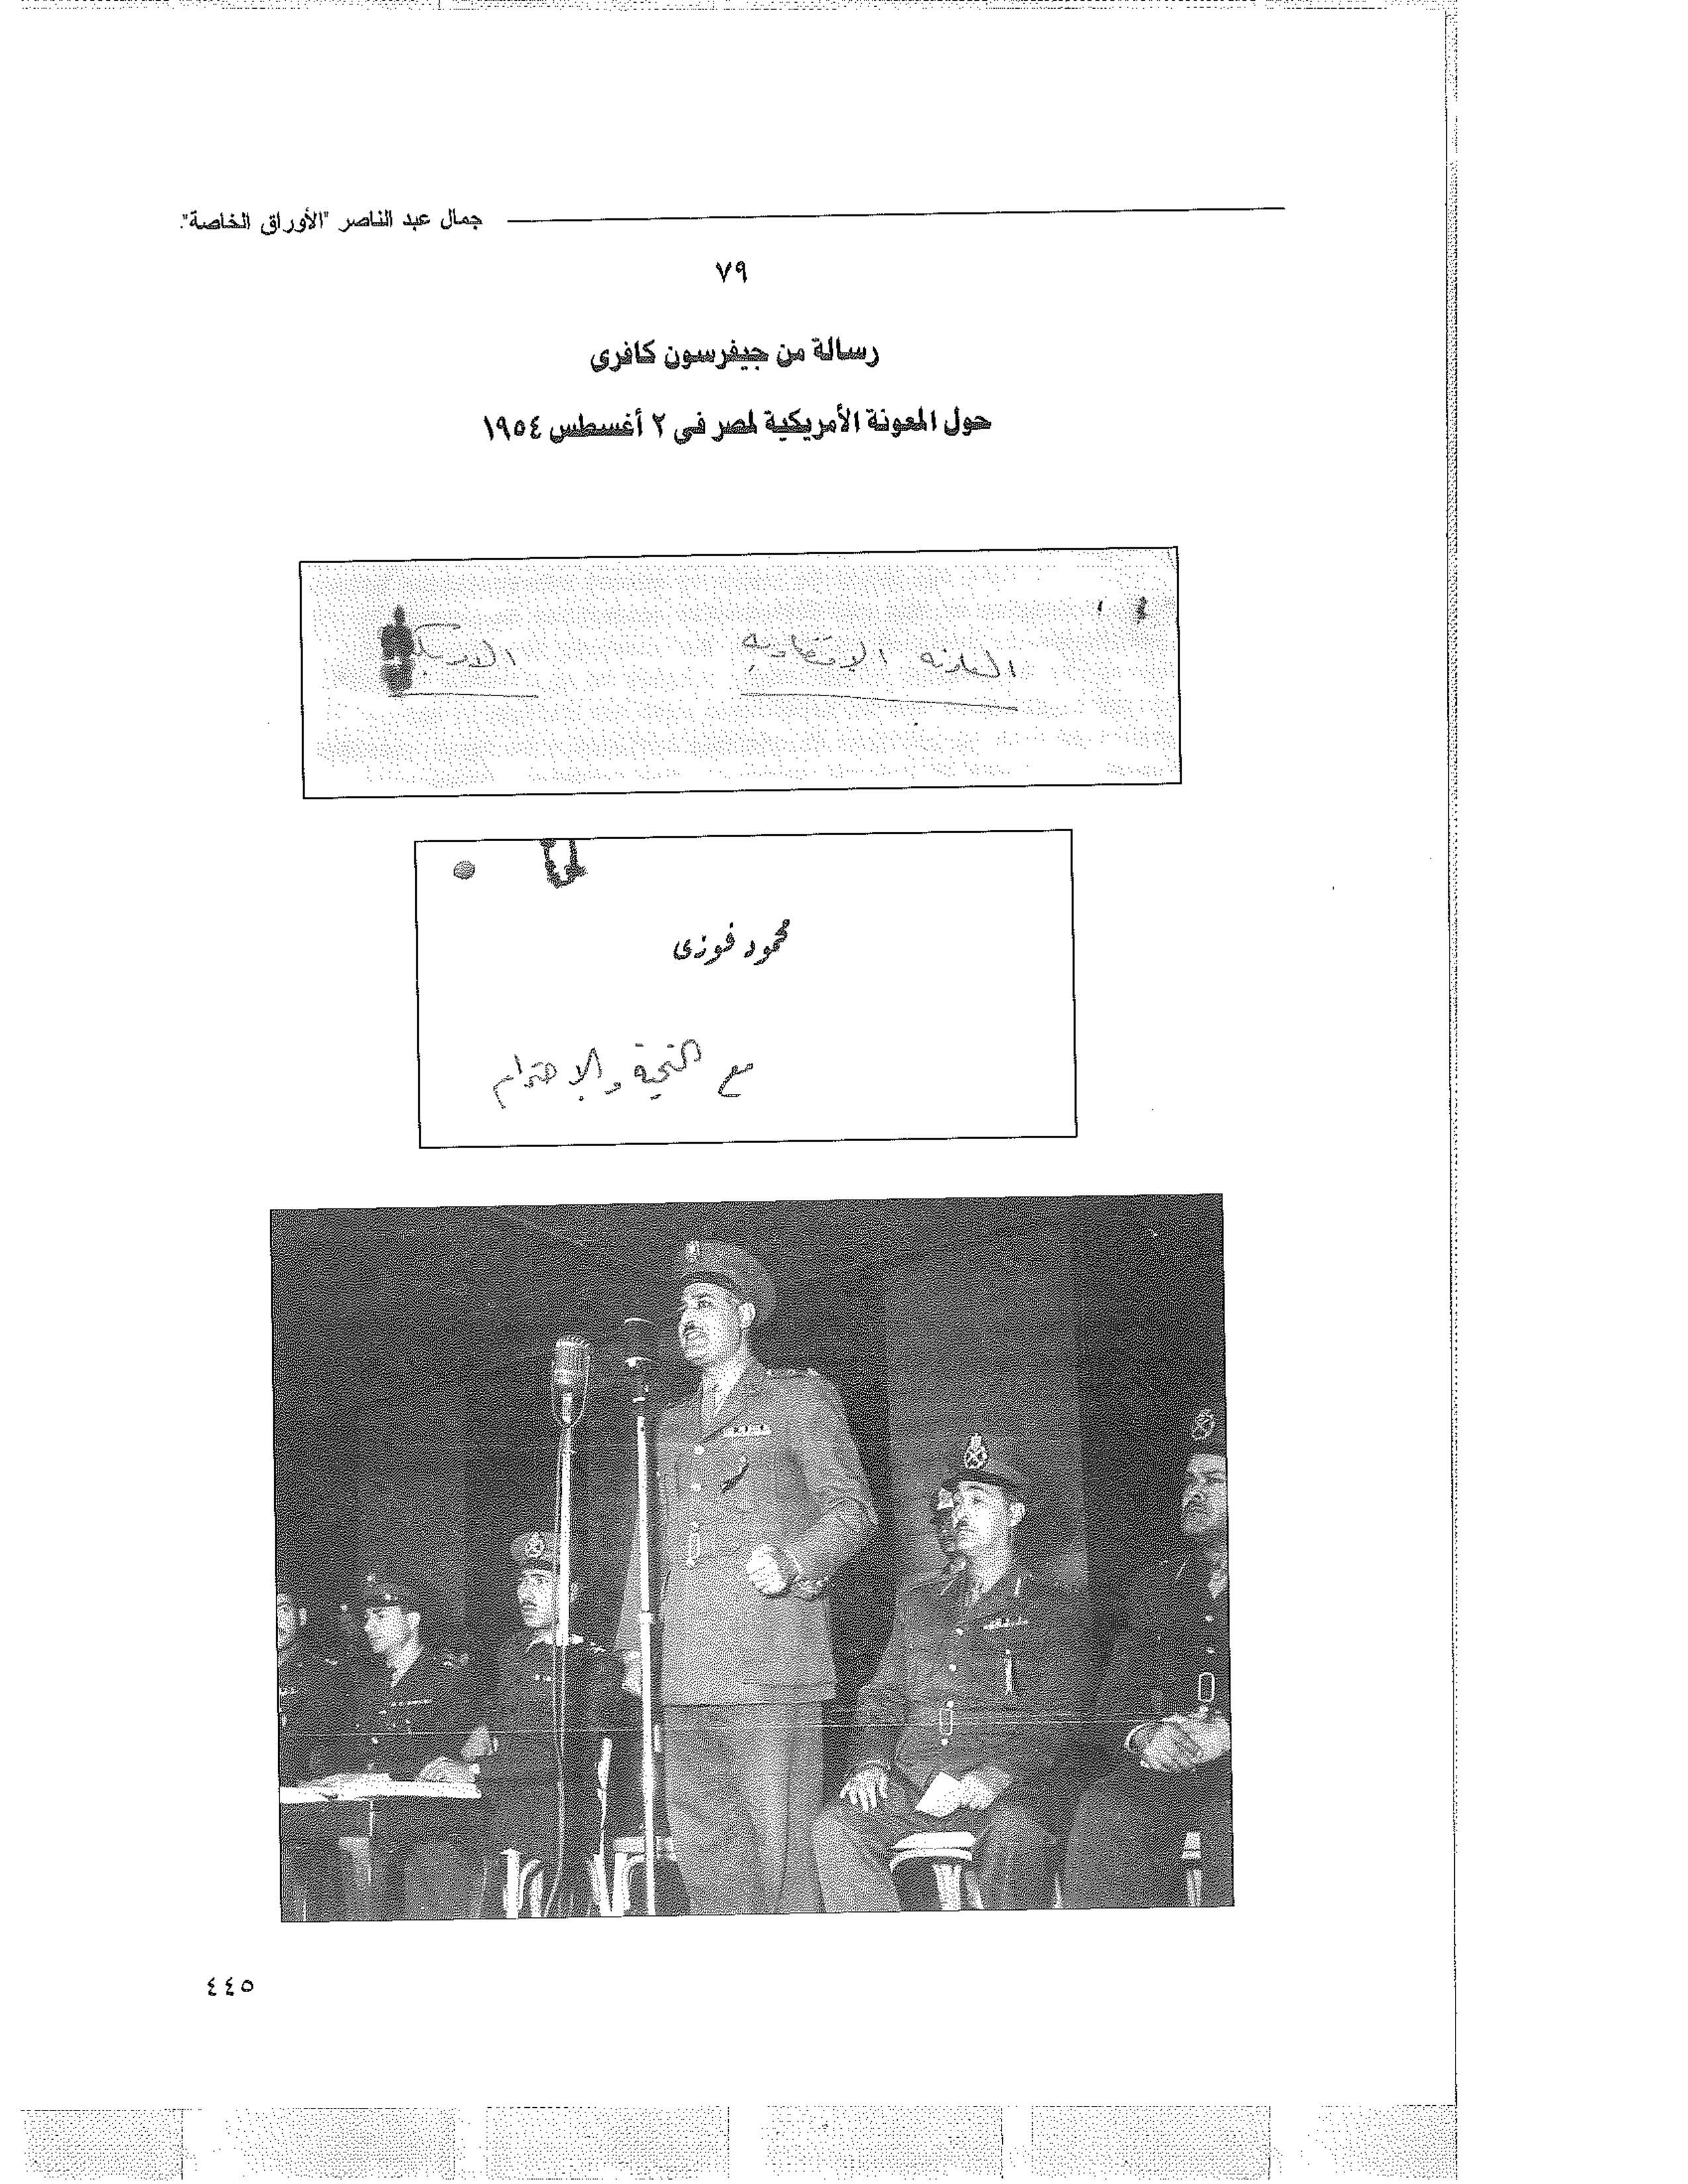 جمال عبد الناصر "الأوراق الخاصة".
٧٩
رسالة من جيفرسون كافرى
حول المعونة الأمريكية لمصر فى ٢ أغسطس ١٩٥٤
الاقتصاديه
محمود فوزى
مع التحية والاحترام
٤٤٥